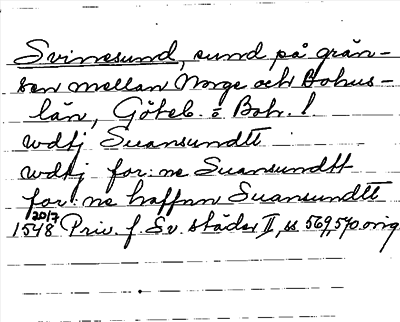 Svinesund, sund på grän-
sen mellan Norge och Bohus-
län, Göteb. o Boh. l
wdtj Suansundtt
wdtj for:ne Suansundtt
for:ne haffnn Suansundtt
1548 20/7 Priv. f. Sv. städer II, ss 569, 570 orig.